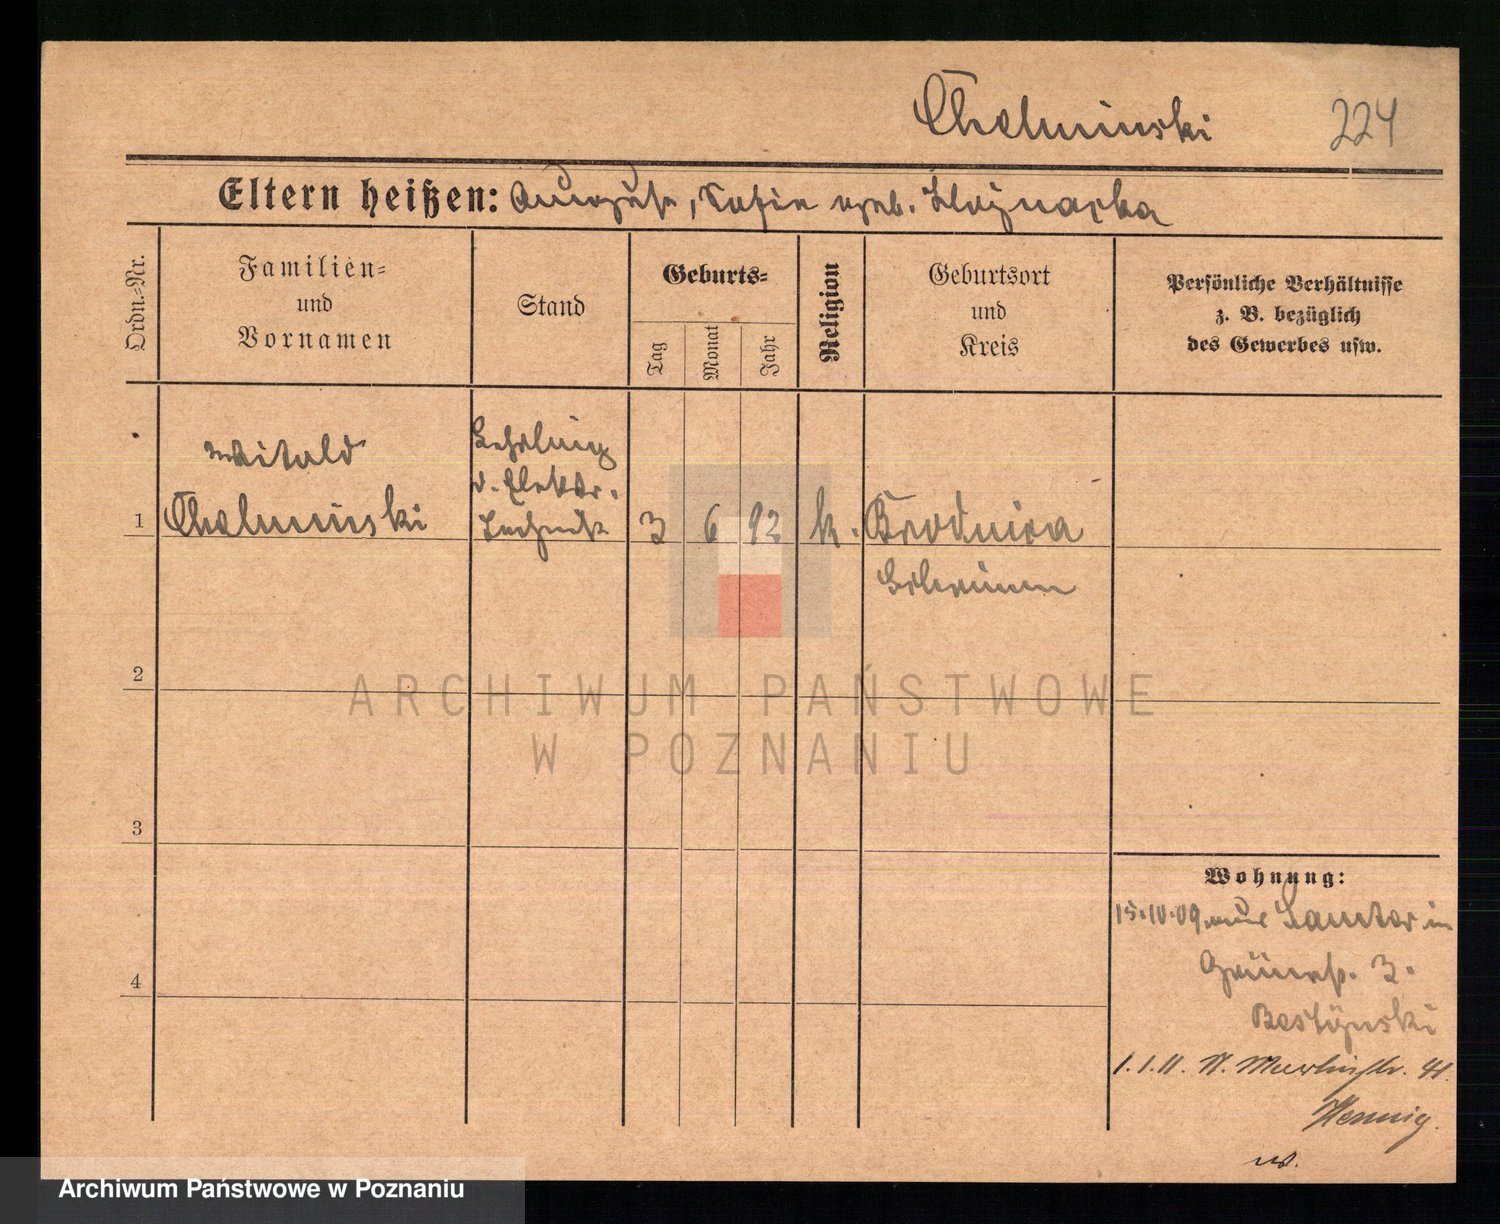 Chelminski 224
Eltern heißen: August, Sofia geb.
Ordn.-Nr.
Familien=
und
Vornamen
Stand
Geburts=
Tag
Monat
Jahr
Religion
Geburtsort
und
Kreis
Persönliche Verhältnisse
z. B. bezüglich
des Gewerbes usw.
Witold
Chelminski
Lehrling
d. Elektr.
Technik
1
3 6 92 k. Brodnica
Schrimm
2
3
4
ARCHIWUM PAŃSTWOWE
W POZNANIU
Wohnung:
15.10.09 aus Samter in
Grünerstr. 3.
1.1.11. N. Martinstr. 41.
Hennig.
Archiwum Państwowe w Poznaniu